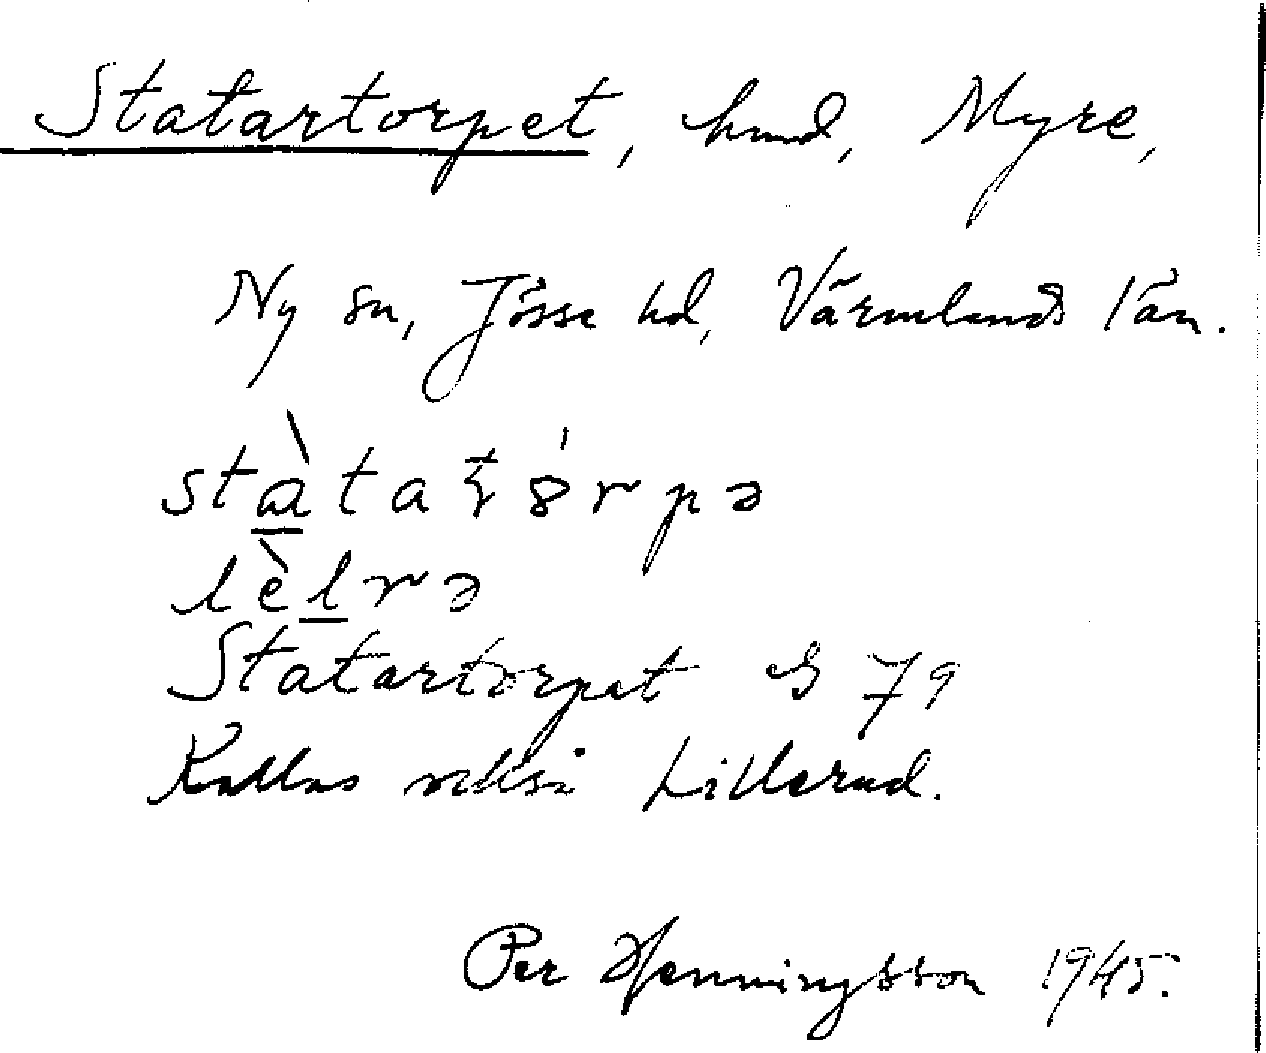 Statartorpet, hmd, Myre,
Ny sn, Jösse hd, Värmlands län.
stàtatórpə
lèlrə
Statartorpet G 79
Kallas också Lillerud.
Per Henningsson 1945.